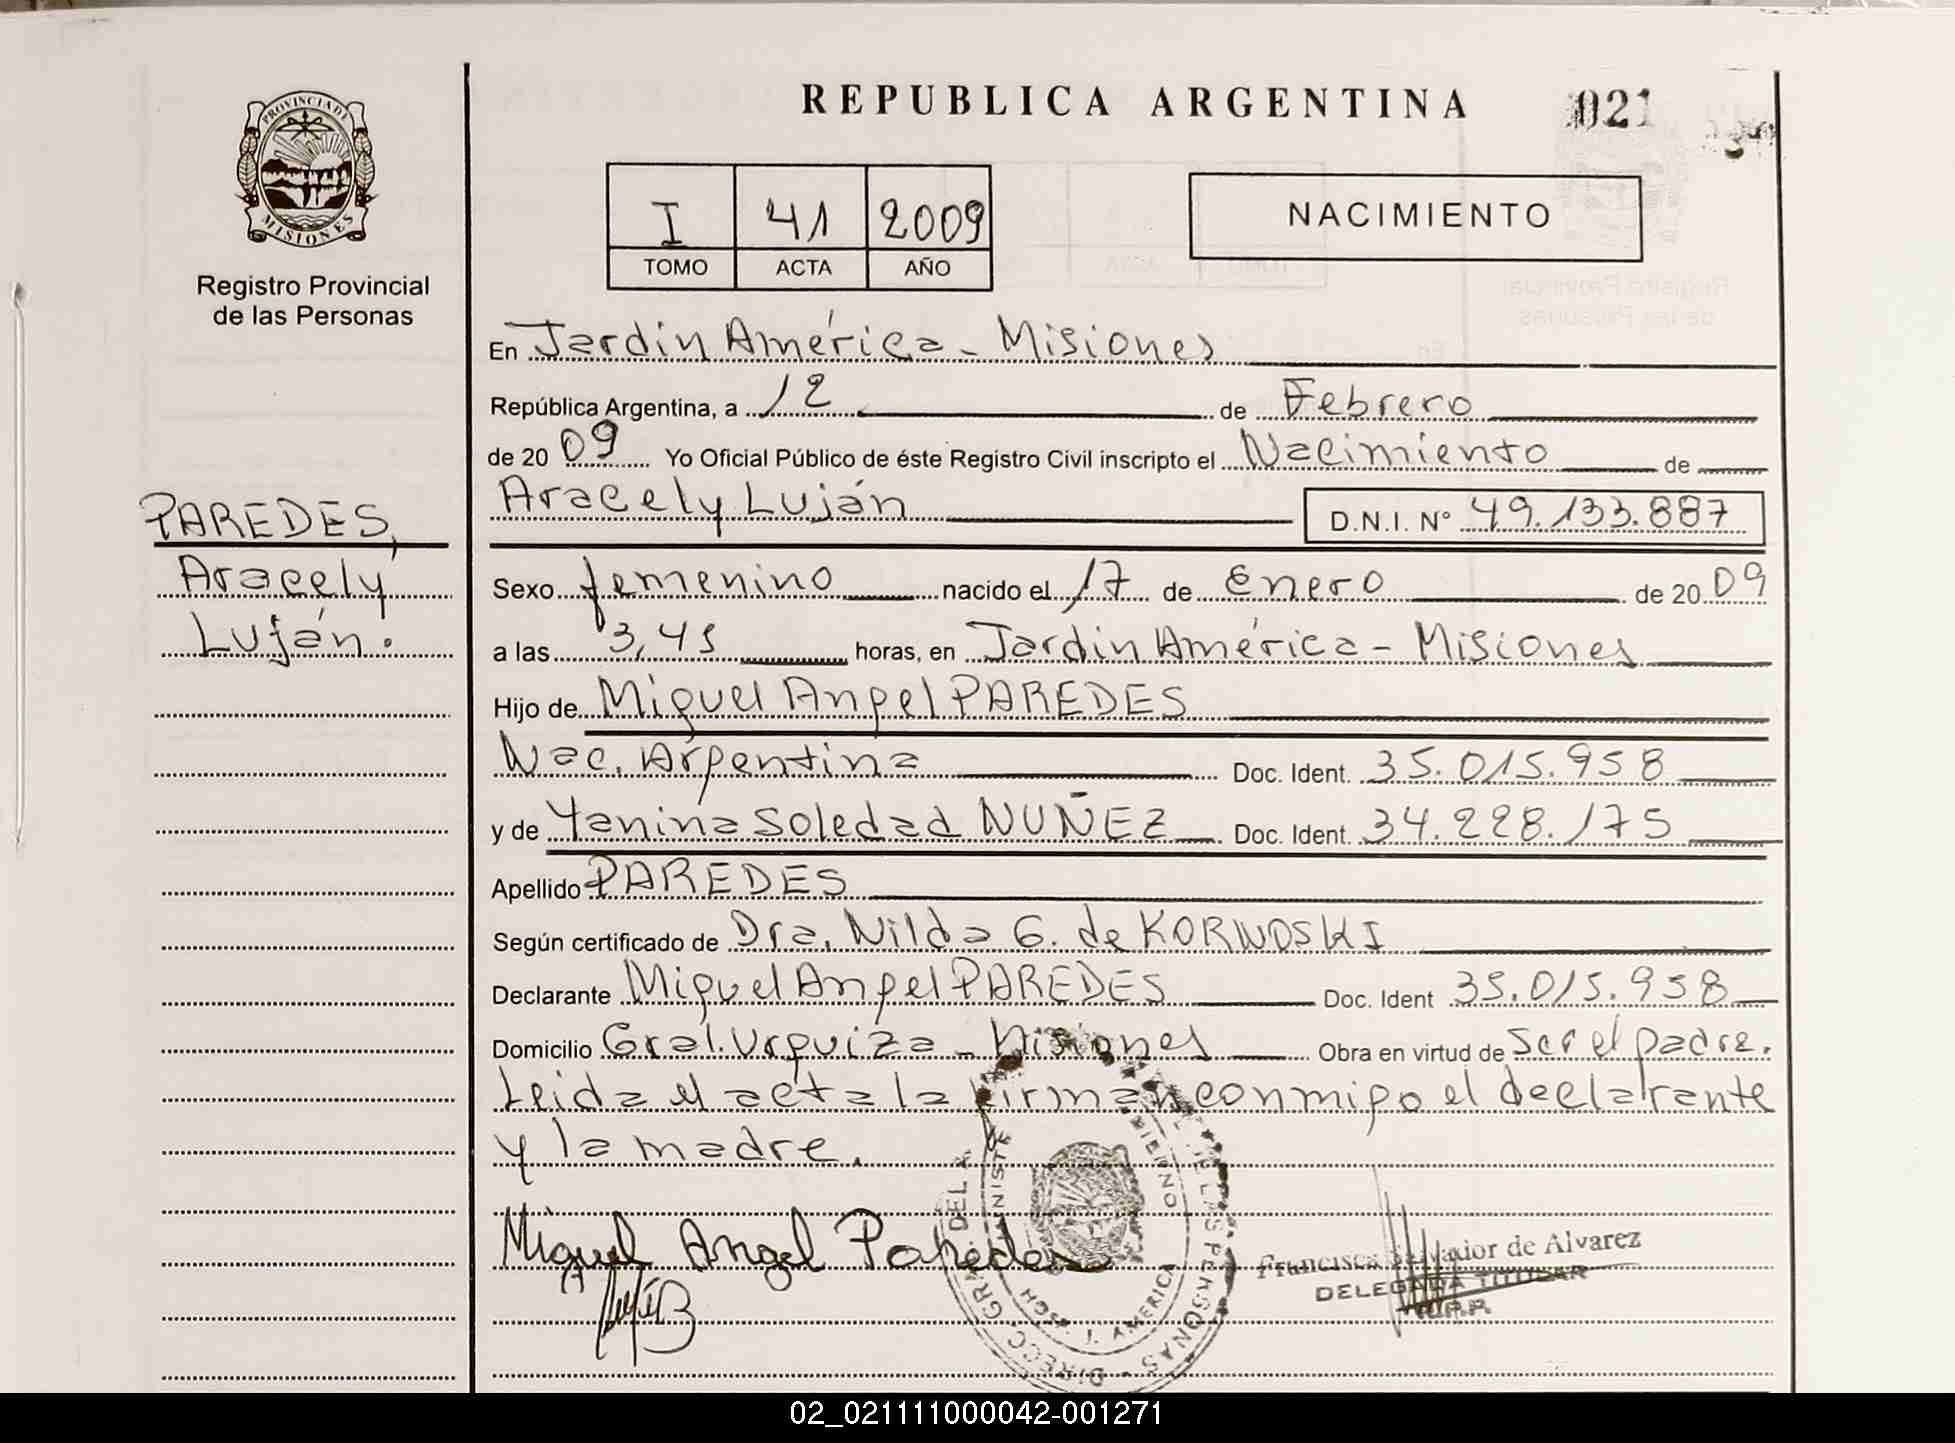 REPUBLICA ARGENTINA
021
PROVINCIA DE
MISIONES
Registro Provincial
de las Personas
I 41 2009
TOMO ACTA AÑO
NACIMIENTO
En Jardín América - Misiones
República Argentina, a 12 de Febrero
de 20 09 Yo Oficial Público de éste Registro Civil inscripto el Nacimiento de
Aracely Luján D.N.I. Nº 49.133.887
PAREDES,
Aracely
Luján.
Sexo femenino nacido el 17 de Enero de 20 09
a las 3,45 horas, en Jardín América - Misiones
Hijo de Miguel Angel PAREDES
Nac. Argentina Doc. Ident. 35.015.958
y de Yanina Soledad NUÑEZ Doc. Ident. 34.228.175
Apellido PAREDES
Según certificado de Dra. Nilda G. de KORNOSKI
Declarante Miguel Angel PAREDES Doc. Ident 35.015.958
Domicilio Gral. Urquiza - Misiones Obra en virtud de ser el padre.
Leida el acta la firman conmigo el declarante
y la madre.
Miguel Angel Paredes
Francisca de Alvarez
DELEGADA TITULAR
R.P.P.
DE LAS PERSONAS
J. AMERICA
02_021111000042-001271